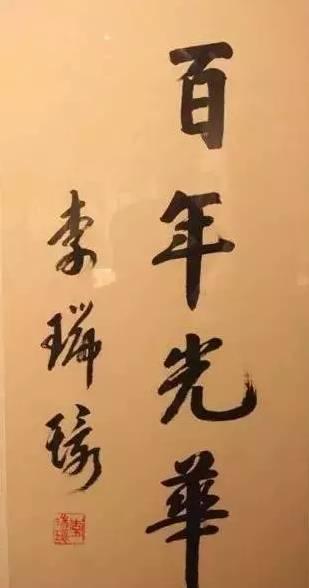 百年光華
李瑞環